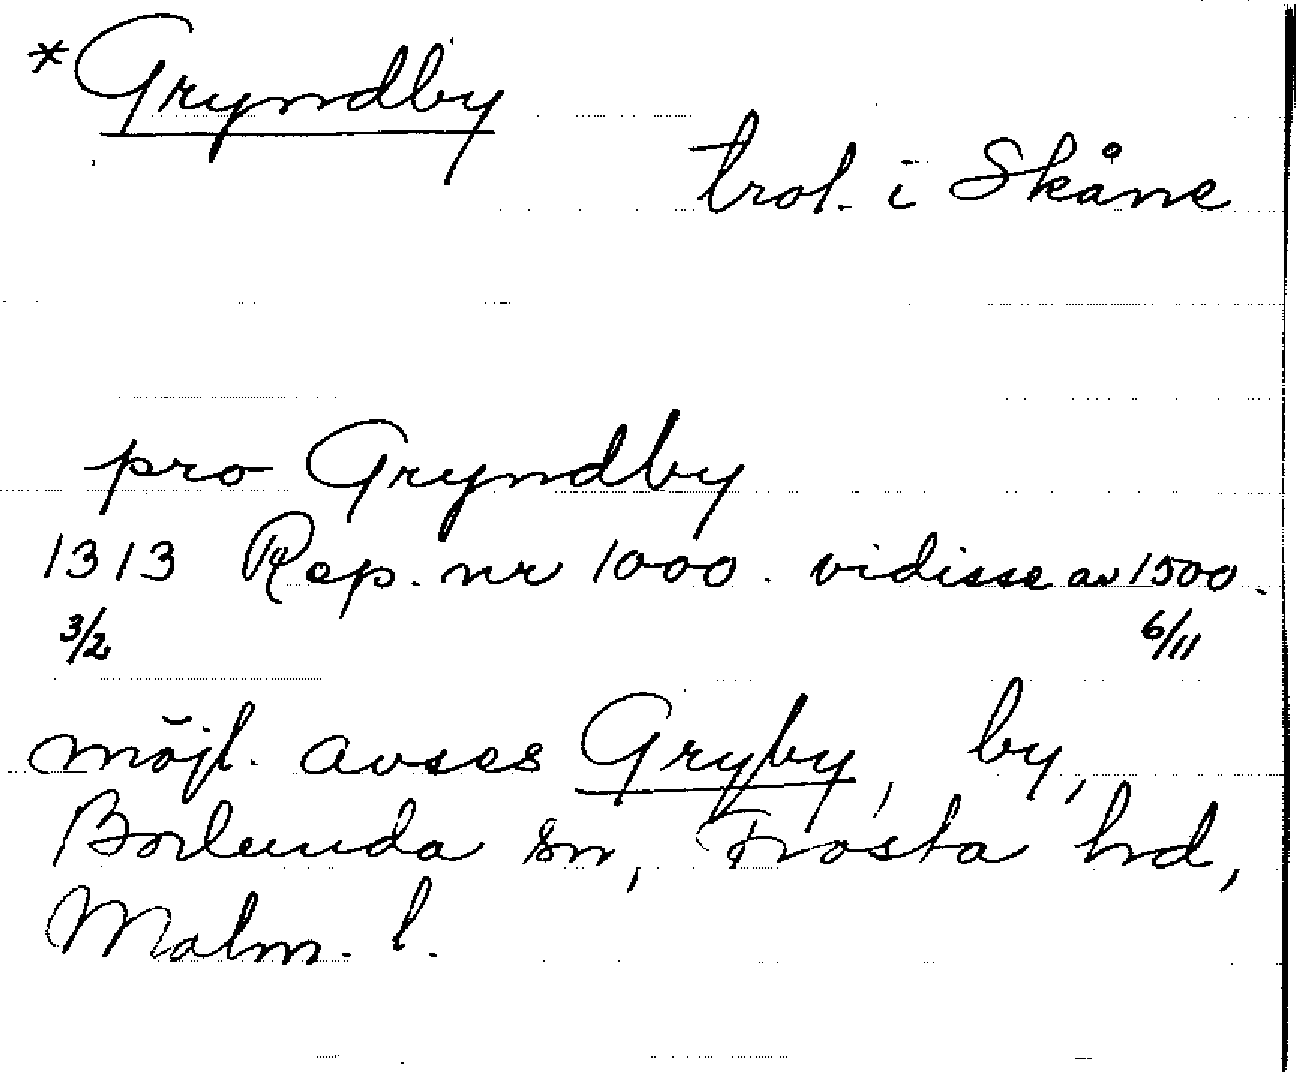 *Gryndby
trol. i Skåne
pro Gryndby
1313 Rep. nr 1000. vidisse av 1500.
3/2 6/11
möjl. avses Gryby, by,
Borlunda sn, Frosta hd,
Malm. l.